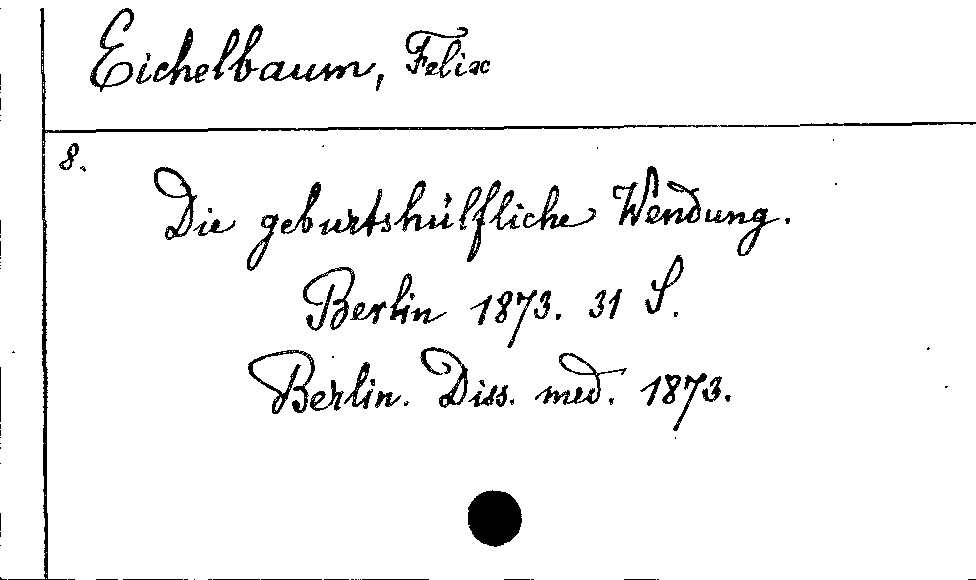 Eichelbaum, Felix
8.
Die geburtshülfliche Wendung.
Berlin 1873. 31 S.
Berlin. Diss. med. 1873.